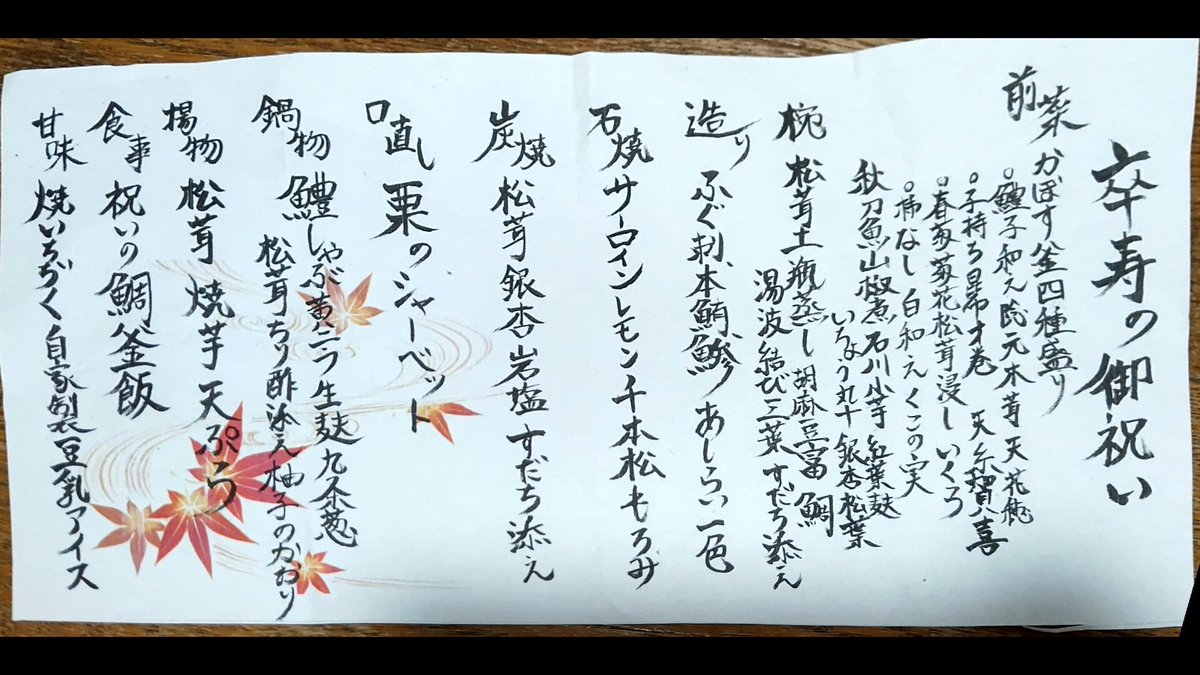 卒寿の御祝い
前菜 かぼす釜四種盛り
。鱧子和え 木茸 天花穂
。子持ち昆布才巻 天糸
。春菊菊花松茸浸し いくら
。柿なし 白和え くこの実
秋刀魚山椒煮 石川小芋 紅葉麩
いちょう丸十 銀杏松葉
椀 松茸土瓶蒸し 胡麻豆富 鯛
湯波 結び三つ葉 すだち添え
造り ふぐ刺、本鮪、鰺 あしらい一色
石焼 サーロインレモン 千本松もろみ
炭焼 松茸 銀杏 岩塩 すだち添え
口直し 栗のシャーベット
鍋物 鱧しゃぶ 黄ニラ 生麩 九条葱
松茸 ちり酢添え 柚子のかおり
揚物 松茸 焼芋 天ぷら
食事 祝いの鯛釜飯
甘味 焼いちぢく 自家製豆乳アイス